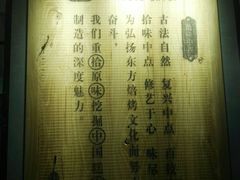 古法自然 复兴中点 百放
拾味中点 修艺于心 味尽
为弘扬东方焙烤文化而努力
奋斗。
我们重拾原味挖掘中国糕
制造的深度魅力。